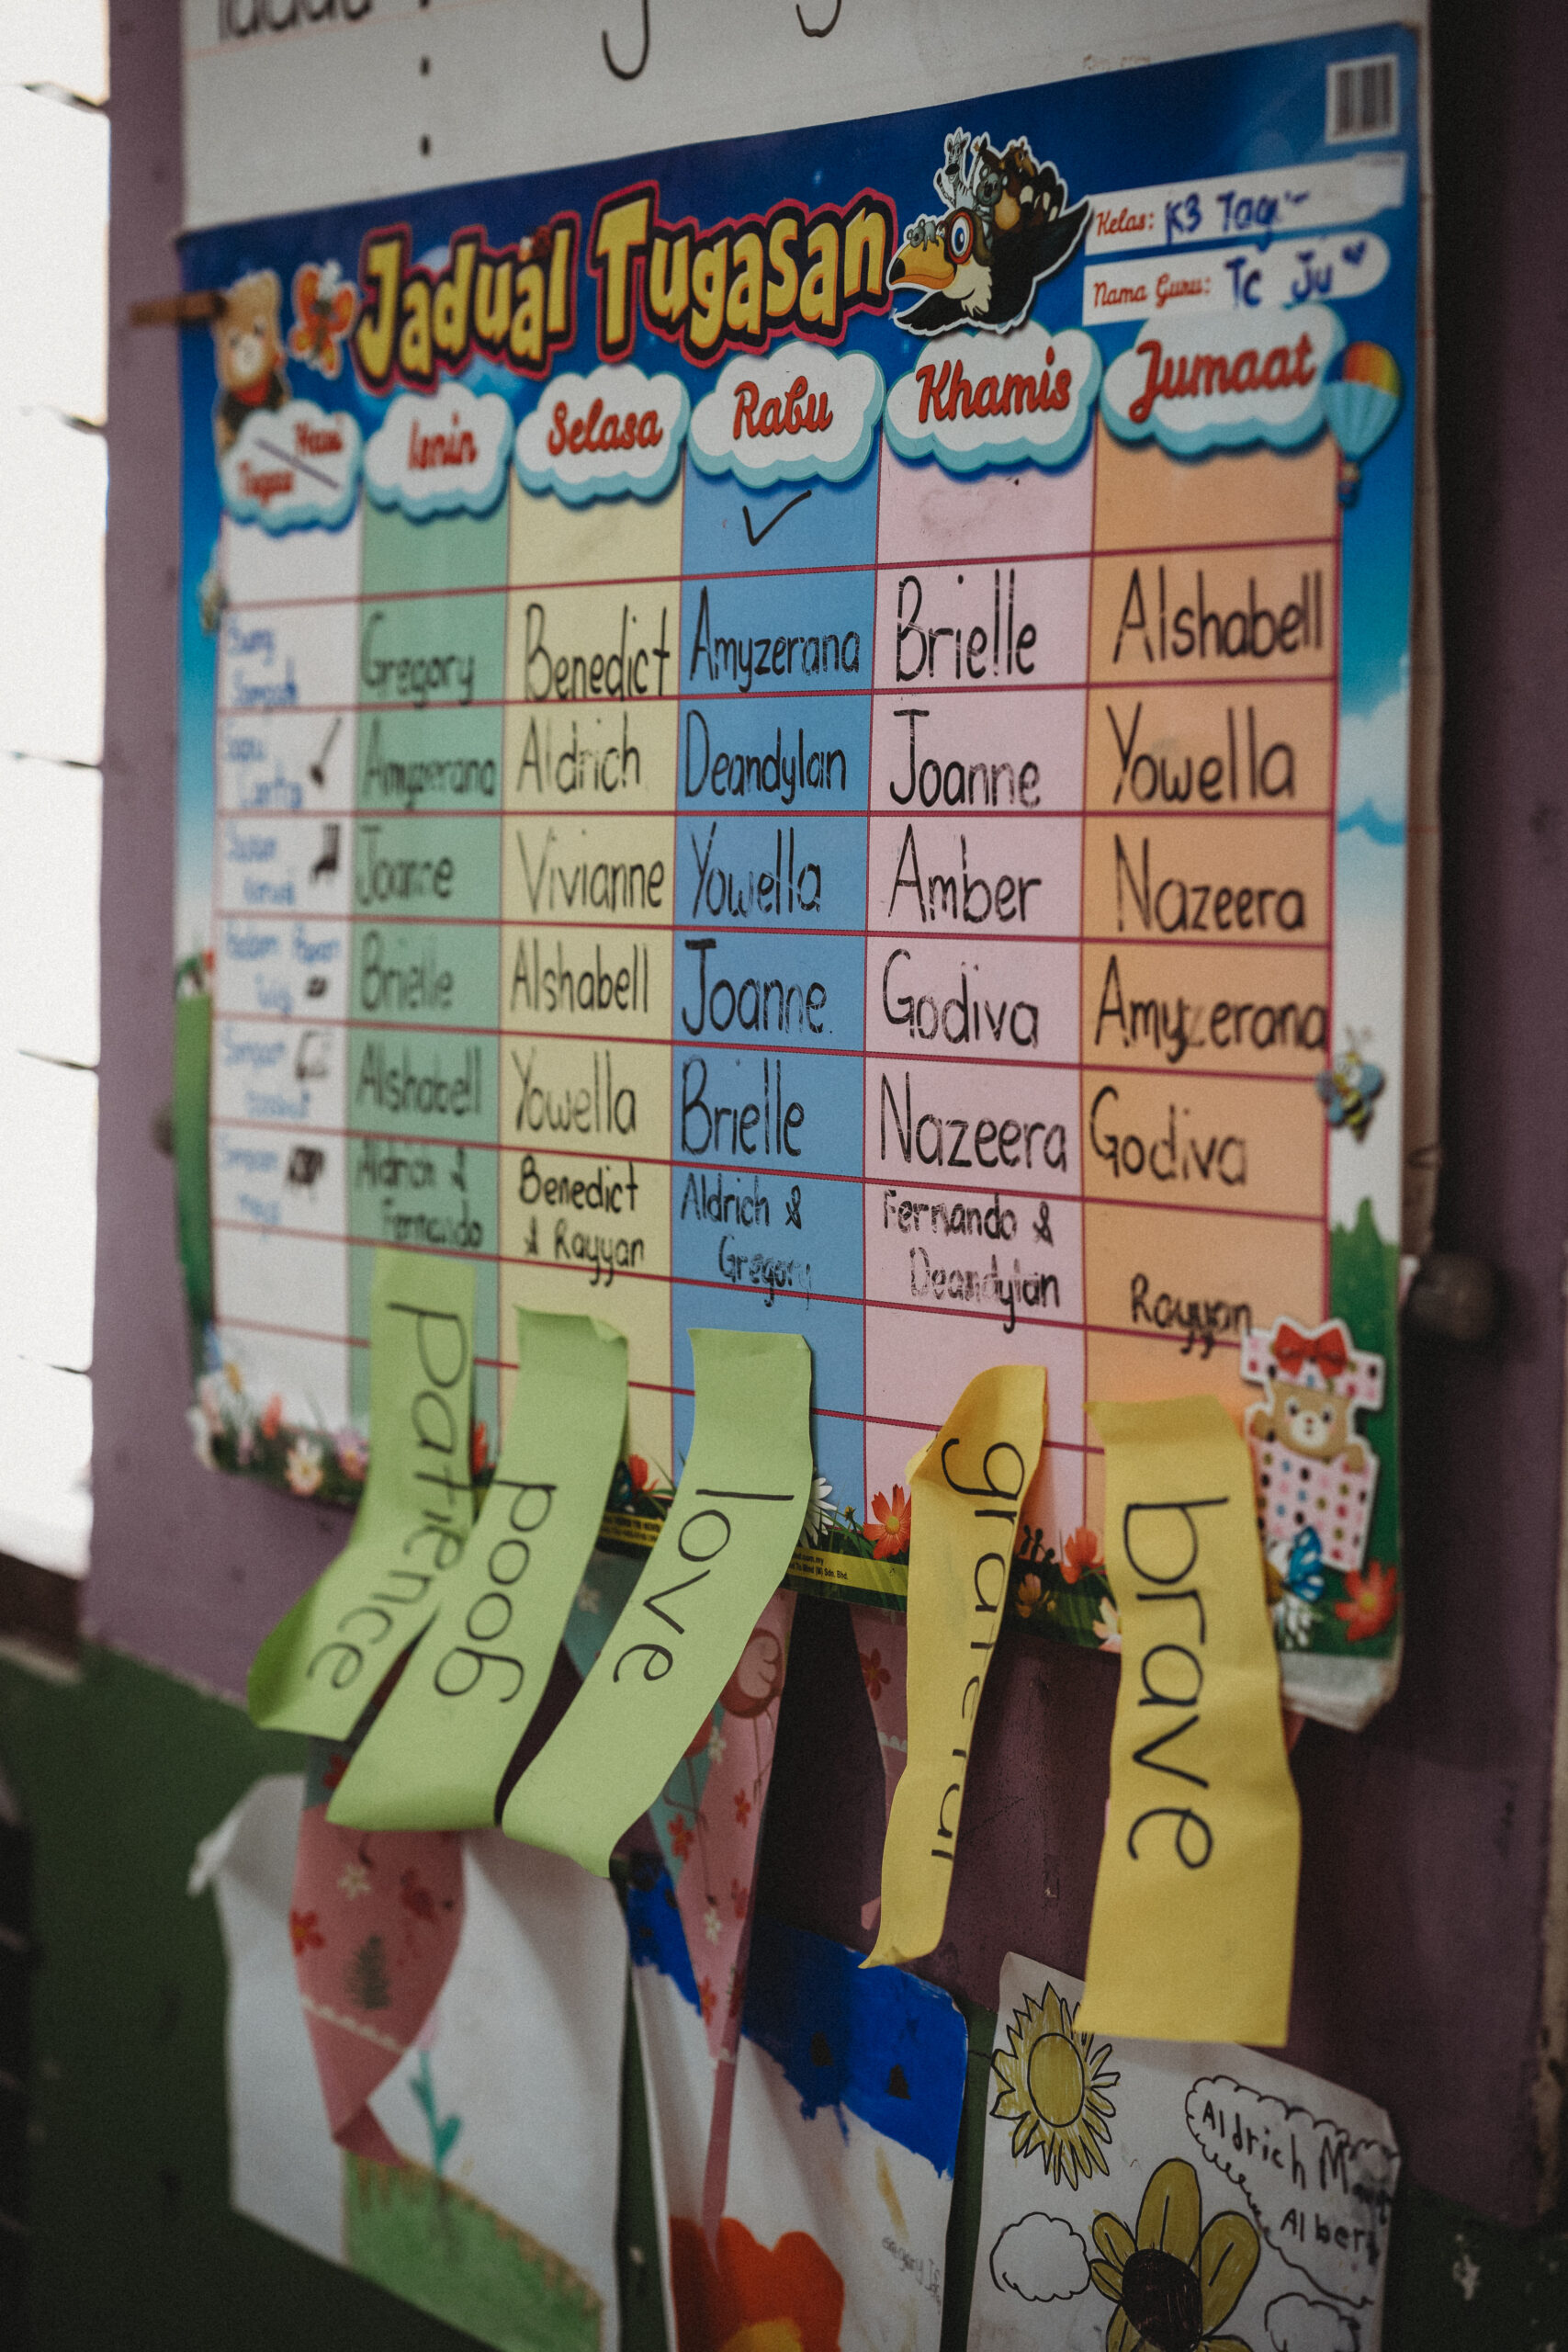 Jadual Tugasan
Kelas: K3
Nama Guru: Tc Ju
Hari
Tugas
Isnin Selasa Rabu Khamis Jumaat
✓
Gregory Benedict Amyzerana Brielle Alshabell
Amyzerana Aldrich Deandylan Joanne Yowella
Joanne Vivianne Yowella Amber Nazeera
Brielle Alshabell Joanne Godiva Amyzerana
Alshabell Yowella Brielle Nazeera Godiva
Aldrich & Fernando
Benedict & Rayyan
Aldrich & Gregory
Fernando & Deandylan
Rayyan
patience
good
love
grateful
brave
Aldrich
Albert